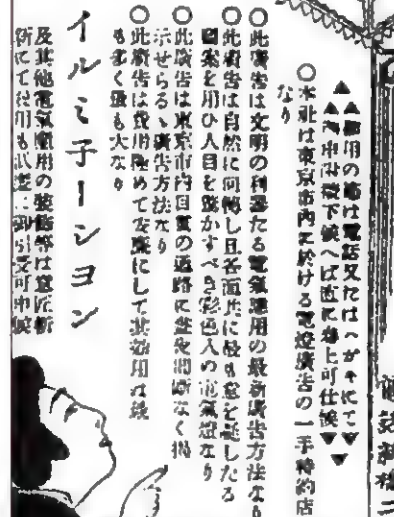 ▲▲御用の節は電話又ははがきにて▼▼
▲御申込被下候へば直に参上可仕候▼
○本社は東京市内に於ける電燈廣告の一手特約店
なり
○此廣告は文明の利器たる電氣應用の最新廣告方法なり
○此廣告は自然に回轉し且各面共に最も意を託したる
圖案を用ひ人目を驚かすべき彩色入の電氣燈なり
○此廣告は東京市内目貫の道路に晝夜間斷なく揭
示せらるゝ廣告方法なり
○此廣告は費用極めて安廉にして其効用は最
も多く且も大なり
イルミ子ーション
及其他電氣應用の裝飾等は意匠斬
新にて費用も